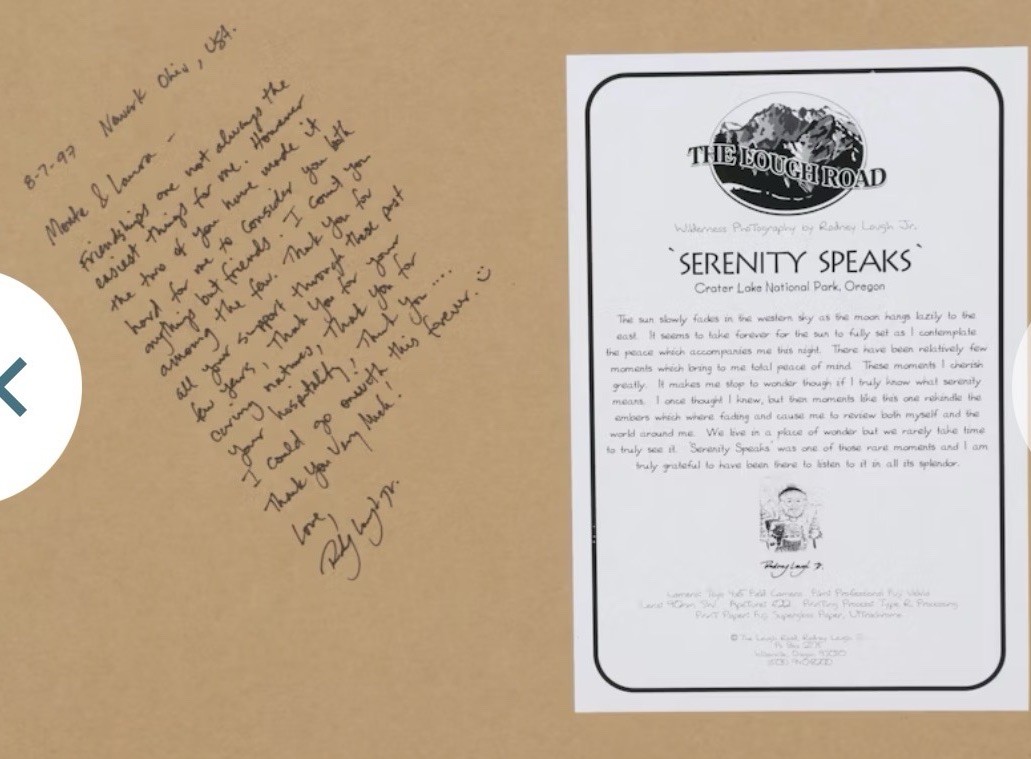 8-7-97 Newark Ohio, USA.
Monte & Laura -
Friendships are not always the
easiest things for me. However
the two of you have made it
hard for me to consider you both
anything but friends. I count you
among the few. Thank you for
all your support through these past
few years, Thank you for your
caring natures, Thank you for
your hospitality! Thank you....
I could go on with this forever. :)
Thank you Very Much!
Love,
Rodney Lough Jr.
THE LOUGH ROAD
Wilderness Photography by Rodney Lough Jr.
`SERENITY SPEAKS`
Crater Lake National Park, Oregon
The sun slowly fades in the western sky as the moon hangs lazily to the
east. It seems to take forever for the sun to fully set as I contemplate
the peace which accompanies me this night. There have been relatively few
moments which bring to me total peace of mind. These moments I cherish
greatly. It makes me stop to wonder though if I truly know what serenity
means. I once thought I knew, but then moments like this one rekindle the
embers which where fading and cause me to review both myself and the
world around me. We live in a place of wonder but we rarely take time
to truly see it. `Serenity Speaks` was one of those rare moments and I am
truly grateful to have been there to listen to it in all its splendor.
Rodney Lough Jr.
Camera: 4x5 Field Camera Professional Fuji
Lens: 90mm Aperture: f22 Printing Process: Type R Processing
Print Paper: Fuji Supergloss Paper,
© The Lough Road, Rodney Lough Jr.
Po Box
Oregon